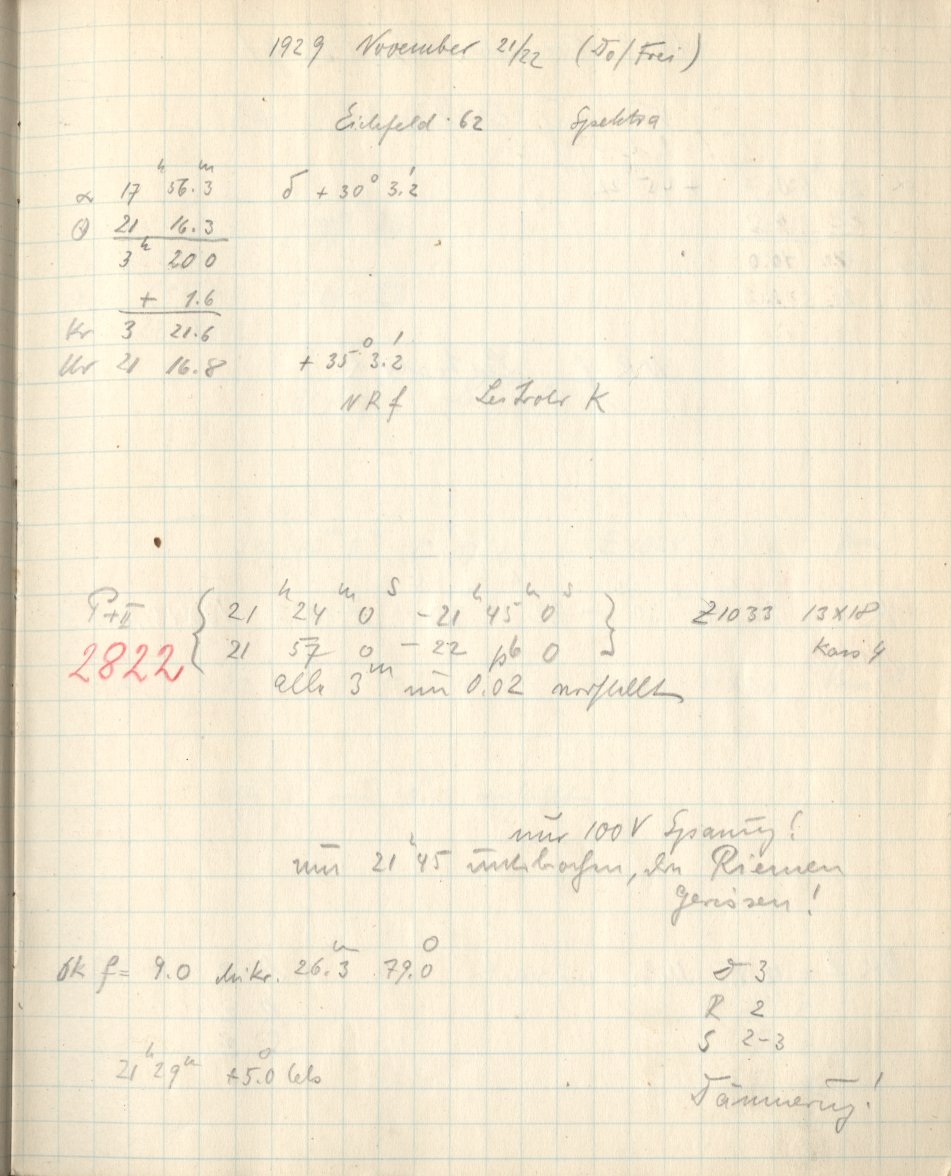 1929 November 21/22 (Do/Frei)
Eichfeld 62 Spektra
α 17ʰ 56.ᵐ3 δ +30° 3.'2
21 16.3
3ʰ 20 0
+ 1.6
Kr 3 21.6
Uhr 21 16.8 +35° 3.'2
NRf Leitrohr K
P+II { 21ʰ 24ᵐ 0ˢ - 21ʰ 45ᵐ 0ˢ } Z1033 13x18
2822 21 57 0 - 22 0
alle 3ᵐ um 0.02 verstellt
nur 100V Spanng!
um 21ʰ45 unterbrochen, da Riemen
gerissen!
f = 9.0 Mikr. 26.3 79.0
D 3
R 2
S 2-3
21ʰ29ᵐ +5.°0 Cels
Dämmerung!